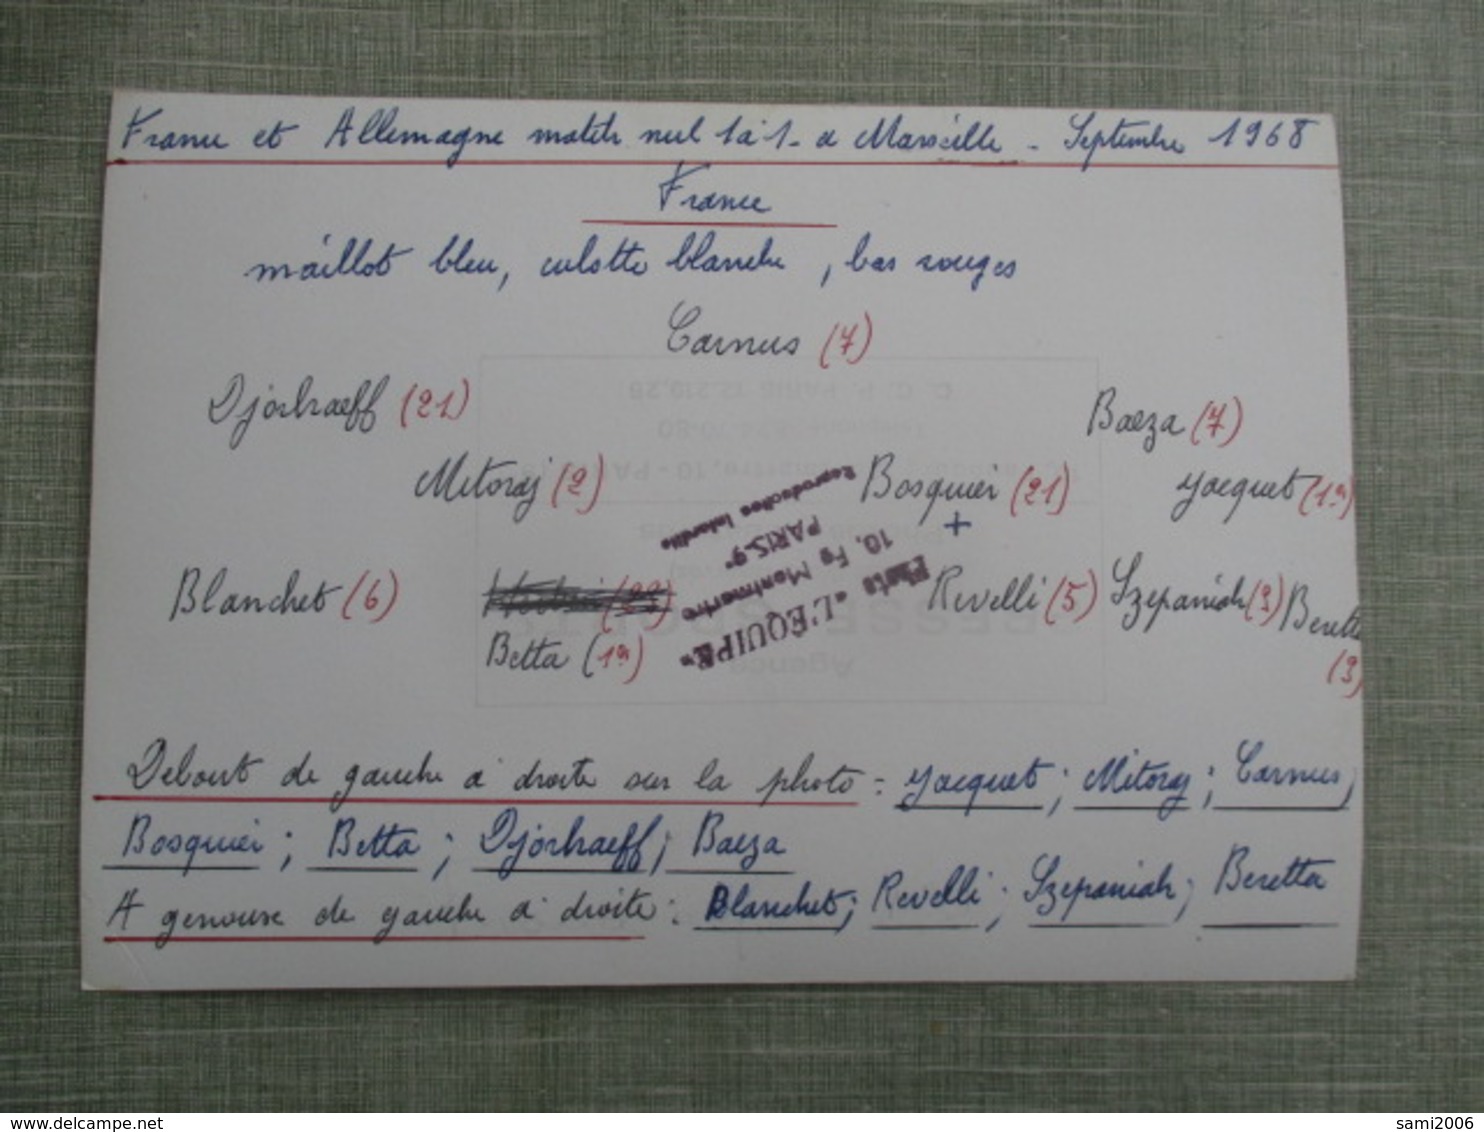 France et Allemagne match nul 1 à 1 - à Marseille - Septembre 1968
France
maillot bleu, culotte blanche, bas rouges
Carnus (7)
Djorkaeff (21) Baeza (7)
Mitoraj (2) Bosquier (21) Jacquet (1er)
+
Blanchet (6) Revelli (5) Szepaniak (3) Beretta (3)
Betta (1er)
Photo « L'EQUIPE »
10, Fg Montmartre
PARIS-9e
Reproduction Interdite
C. C. P. PARIS 12.219.28
Agence
Debout de gauche à droite sur la photo = Jacquet ; Mitoraj ; Carnus ;
Bosquier ; Betta ; Djorkaeff ; Baeza
A genoux de gauche à droite : Blanchet ; Revelli ; Szepaniak ; Beretta
www.delcampe.net
sami2006